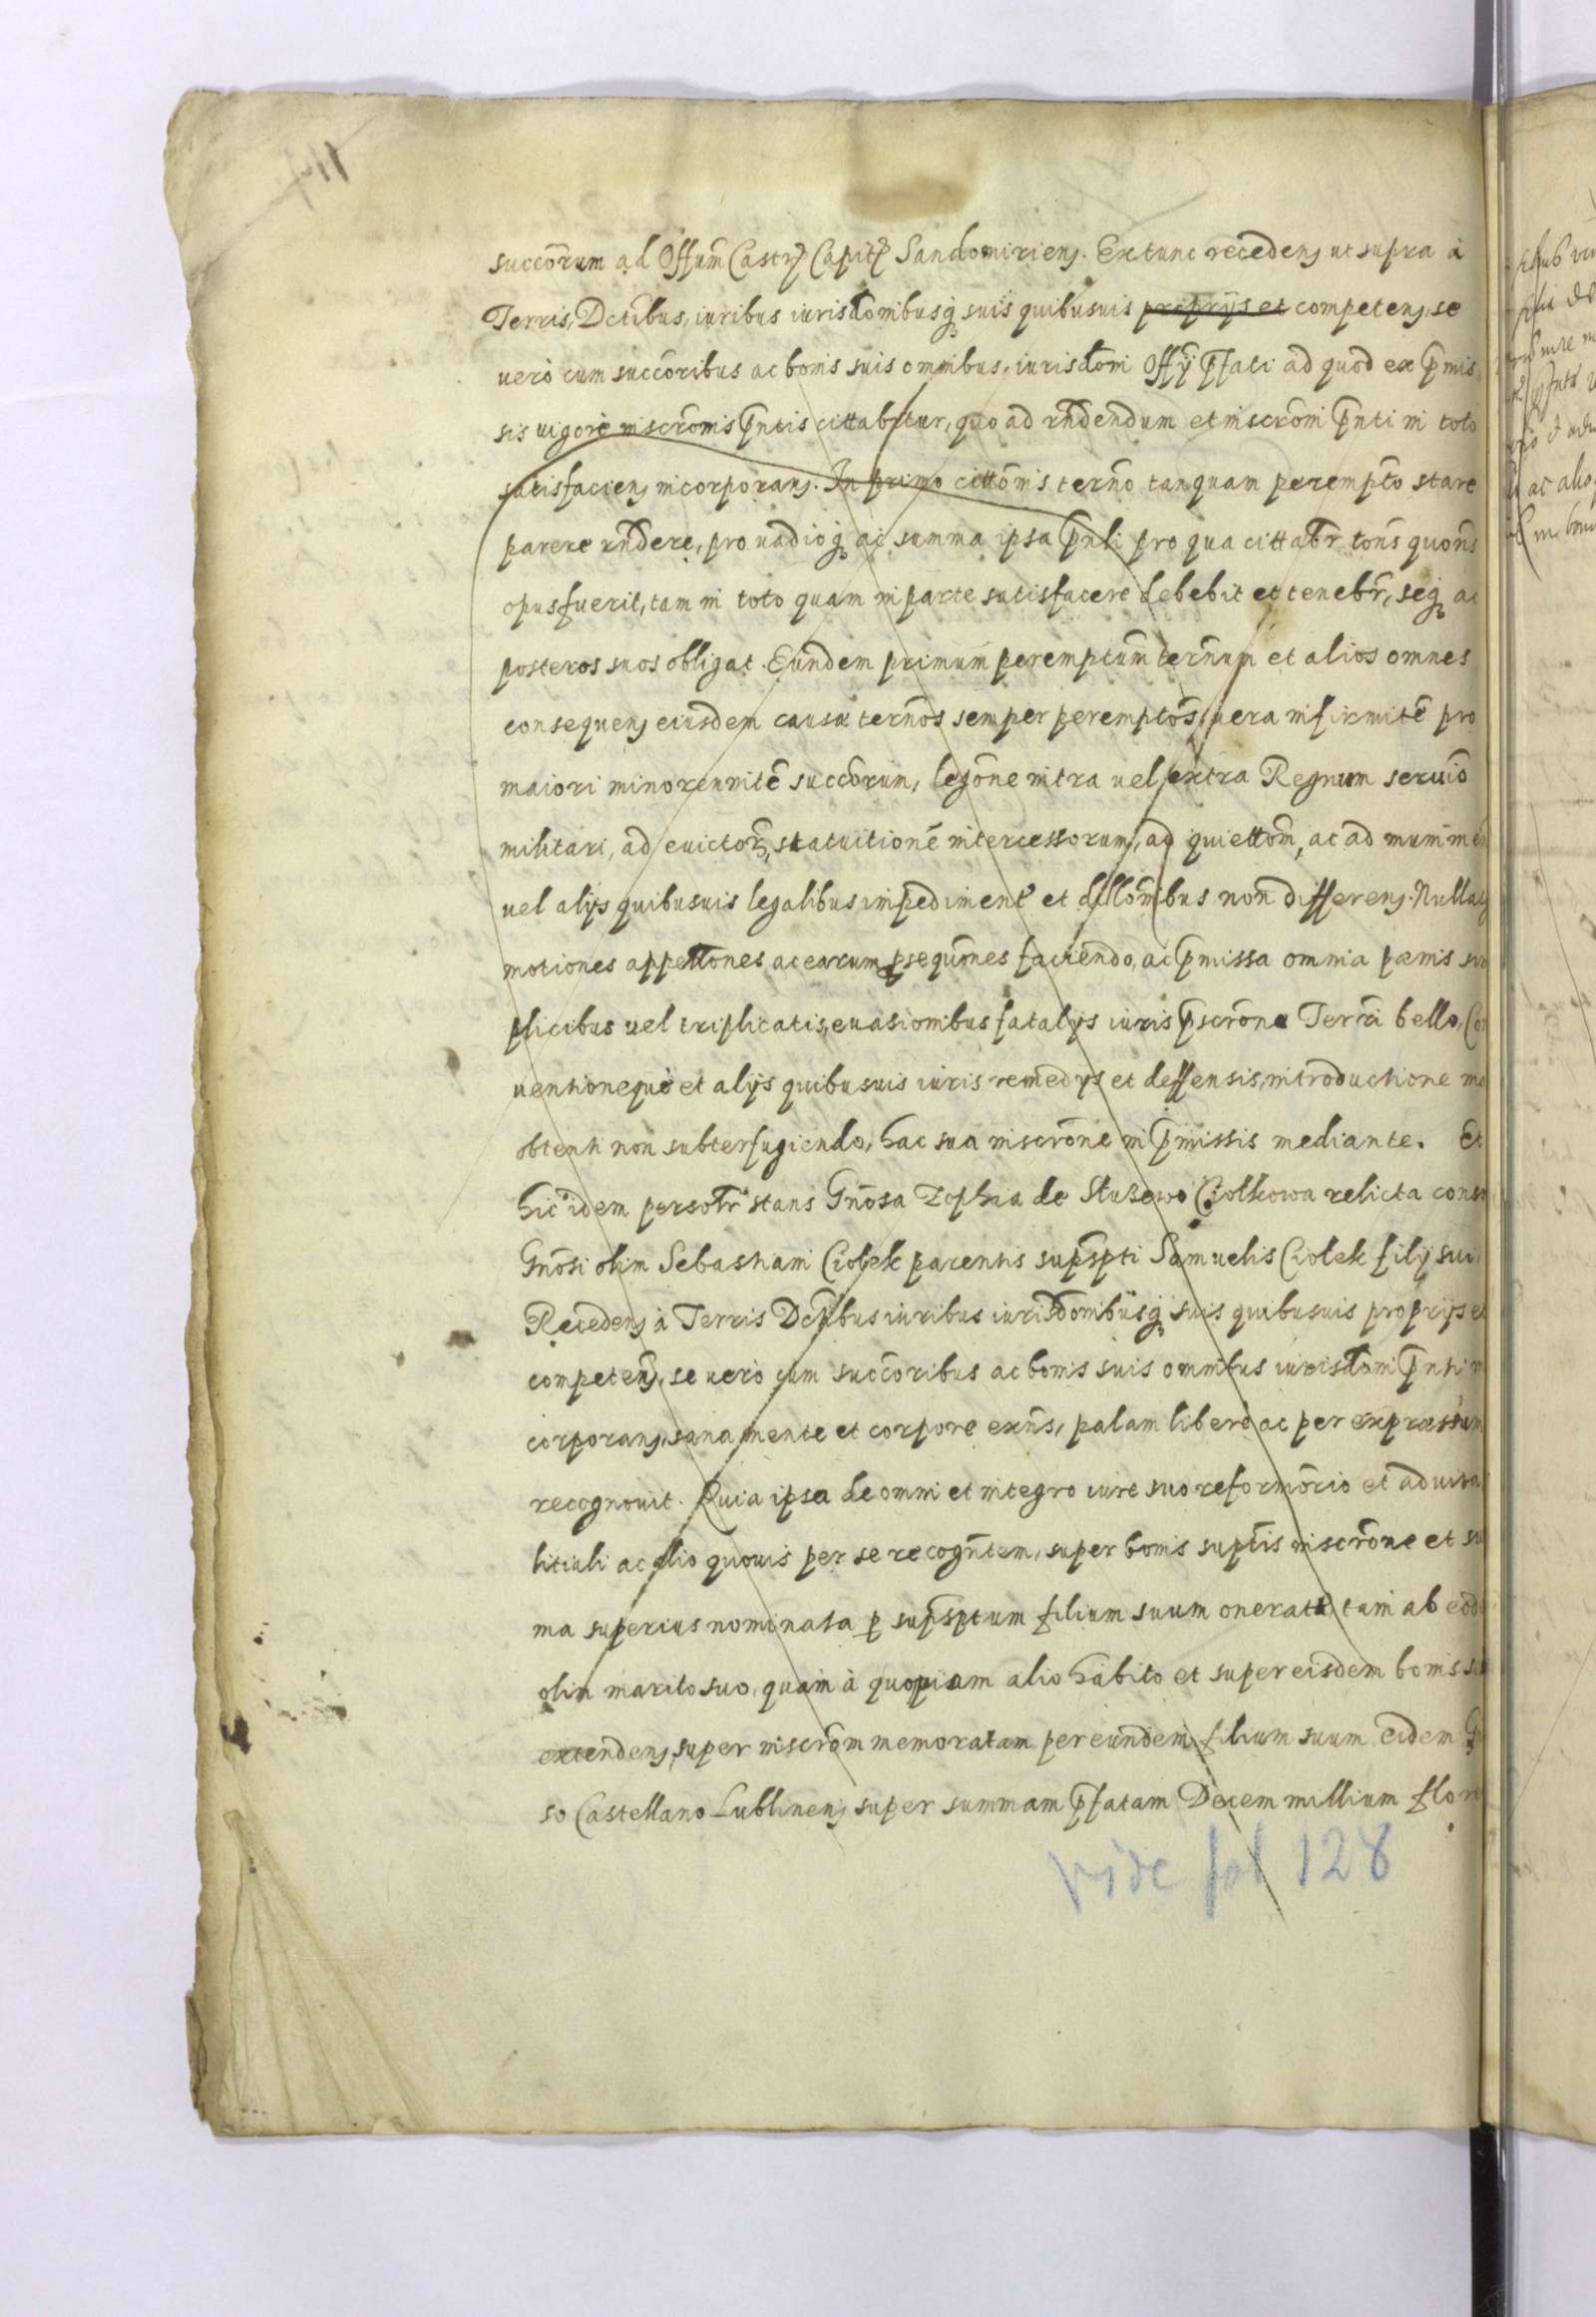 succōrum ad Offum̄ Castrꝫ Capitꝫ Sandomirienꝫ. Extunc recedenꝫ ut supra à
Terris, Dctībus, iuribus iurisd̄ombusqꝫ suis quibusuis propriis et competenꝫ, se
uerò cum succōribus ac bonis suis omnibus, iurisd̄oni Offy p̄fati ad quod ex p̄mis
sis uigore inscrōnis p̄ntis cittabitur, quo ad rn̄dendum et inscrōni p̄nti in toto
satisfacienꝫ incorporanꝫ. In primo cittōnis tern̄o tanquam perempt̄o stare
parere rn̄dere, pro uadioqꝫ ac summa ipsa p̄nti pro qua cittabr̄ tōns quōns
opus fuerit, tam in toto quam in parte satisfacere debebit et tenebr̄, seqꝫ ac
posteros suos obligat. Eundem primum peremptum̄ tern̄um et alios omnes
consequenꝫ eiusdem causæ tern̄os semper peremptōs, uera infirmitē pro
maiori minorennitē succōrum, legōne intra uel extra Regnum seruiō
militari, ad euictor̄, statuitionē intercessorum, ad quiettōm, ac ad munimen
uel alijs quibusuis legalibus impediment̄ et dillōnibus non differenꝫ. Nullasqꝫ
motiones appellōnes ac earum ꝑsequōnes faciendo, ac p̄missa omnia pænis
plicibus uel triplicatis, euasionibus fatalijs iuris p̄scrōne Terræ bello, Con
uentioneque et alijs quibusuis iuris remedijs et deffensis, introductione
obtenti non subterfugiendo, hac sua inscrōne in p̄missis mediante. Et
hic idem persolr̄ stans Gn̄osa Zophia de Stuzewo Ciołkowa relicta
Gn̄osi olim Sebastiani Ciołek parentis sups̄pti Samuelis Ciołek filij sui.
Recedenꝫ à Terris Dctībus iuribus iurisd̄ombusqꝫ suis quibusuis proprijs et
competenꝫ, se uerò cum succōribus ac bonis suis omnibus iurisd̄oni p̄nti in
corporanꝫ, sana mente et corpore exn̄s, palam liberè ac per expræssum
recognouit. Quia ipsa de omni et integro iure suo reformōrio et aduita
litiali ac alio quouis per se recogn̄tem, super bonis suptīs inscrōne et sum
ma superius nominata ꝑ sups̄ptum filium suum oneratis, tam ab eod
olim marito suo, quam à quopiam alio habito et super eisdem bonis
extendenꝫ, super inscrōm memoratam per eundem filium suum eidem
so Castellano Lublinenꝫ super summam p̄fatam Decem millium flo
vide fol 128